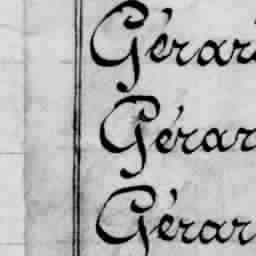 Gérar
Gérar
Gérar